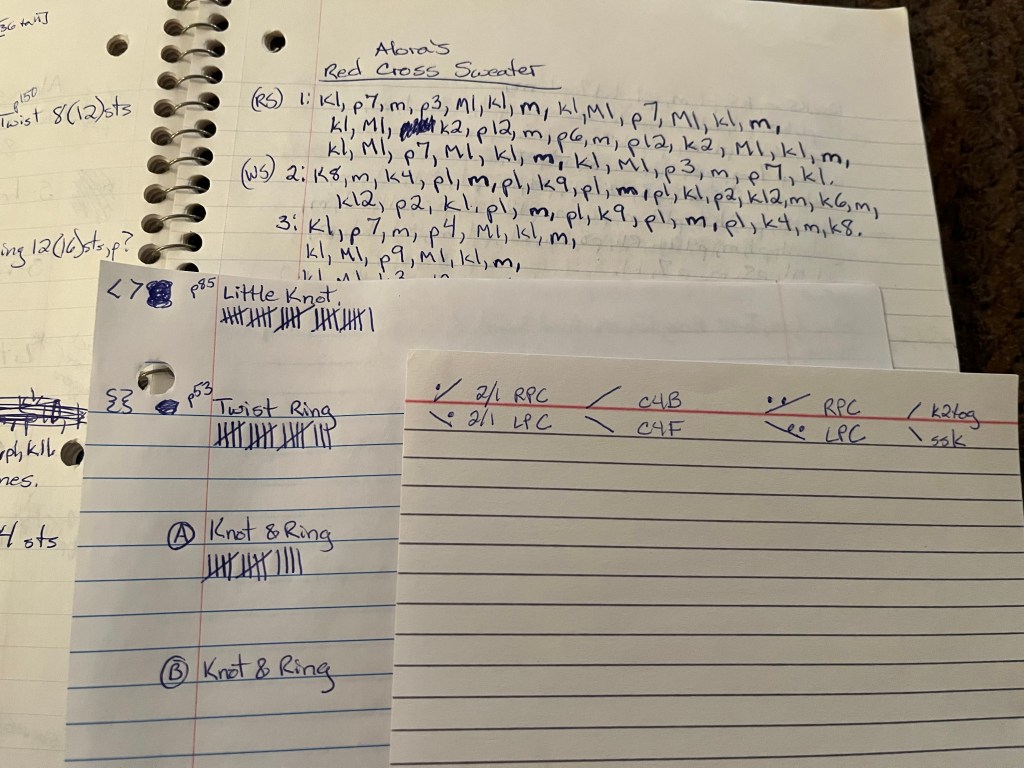 36 tail]
p150
Twist 8(12)sts
ing 12(16)sts, p?
k11
nes.
4 sts
Alora's
Red Cross Sweater
(RS) 1: K1, p7, m, p3, M1, K1, m, K1, M1, p7, M1, K1, m,
K1, M1, K2, p12, m, p6, m, p12, K2, M1, K1, m,
K1, M1, p7, M1, K1, m, K1, M1, p3, m, p7, K1.
(WS) 2: K8, m, K4, p1, m, p1, K9, p1, m, p1, K1, p2, K12, m, K6, m,
K12, p2, K1, p1, m, p1, K9, p1, m, p1, K4, m, K8.
3: K1, p7, m, p4, M1, K1, m,
K1, M1, p9, M1, K1, m,
< > p85 Little Knot.
{ } p53 Twist Ring
(A) Knot & Ring
(B) Knot & Ring
2/1 RPC C4B RPC / K2tog
2/1 LPC C4F LPC \ ssk